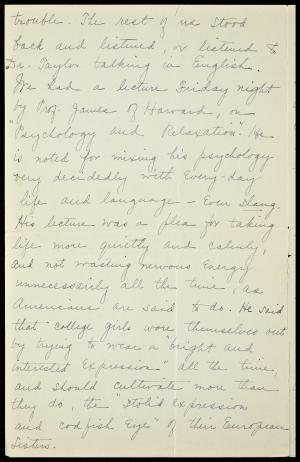 trouble. The rest of us stood
back and listened, or listened to
Dr. Taylor talking in English.
We had a lecture Friday night
by Prof. James of Harvard, on
"Psychology and Relaxation". He
is noted for mixing his psychology
very decidedly with Every-day
life and language – Even Slang.
His lecture was a plea for taking
life more quietly and calmly,
and not wasting nervous energy
unnecessarily all the time, as
Americans are said to do. He said
that college girls wore themselves out
by trying to wear a "bright and
interested Expression" all the time,
and should cultivate more than
they do, the "Stolid Expression
and codfish Eye" of their European
Sisters.